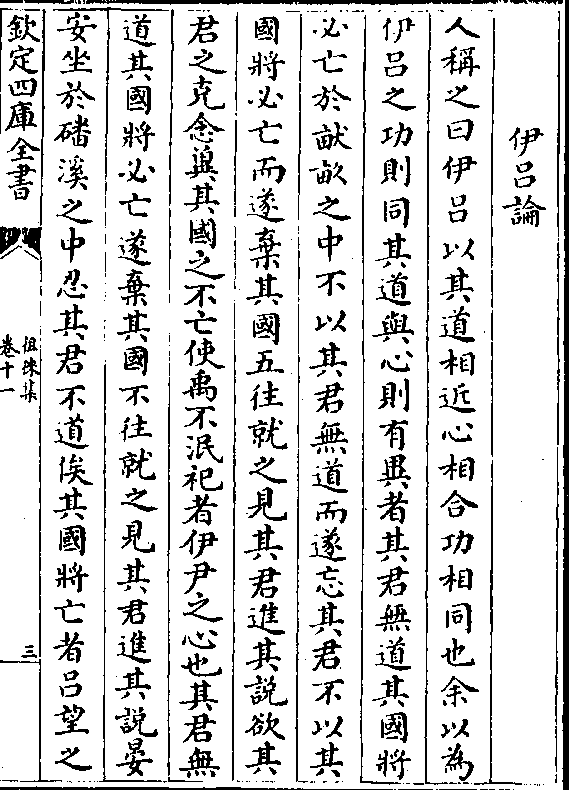 伊吕論
人稱之曰伊吕以其道相近心相合功相同也余以為
伊吕之功則同其道與心則有異者其君無道其國將
必亡於畎畝之中不以其君無道而遂忘其君不以其
國將必亡而遂棄其國五往就之見其君進其說欲其
君之克念兾其國之不亡使禹不泯祀者伊尹之心也其君無
道其國將必亡遂棄其國不往就之見其君進其說晏
安坐於磻溪之中忍其君不道俟其國將亡者吕望之
欽定四庫全書
徂徠集
卷十一
三